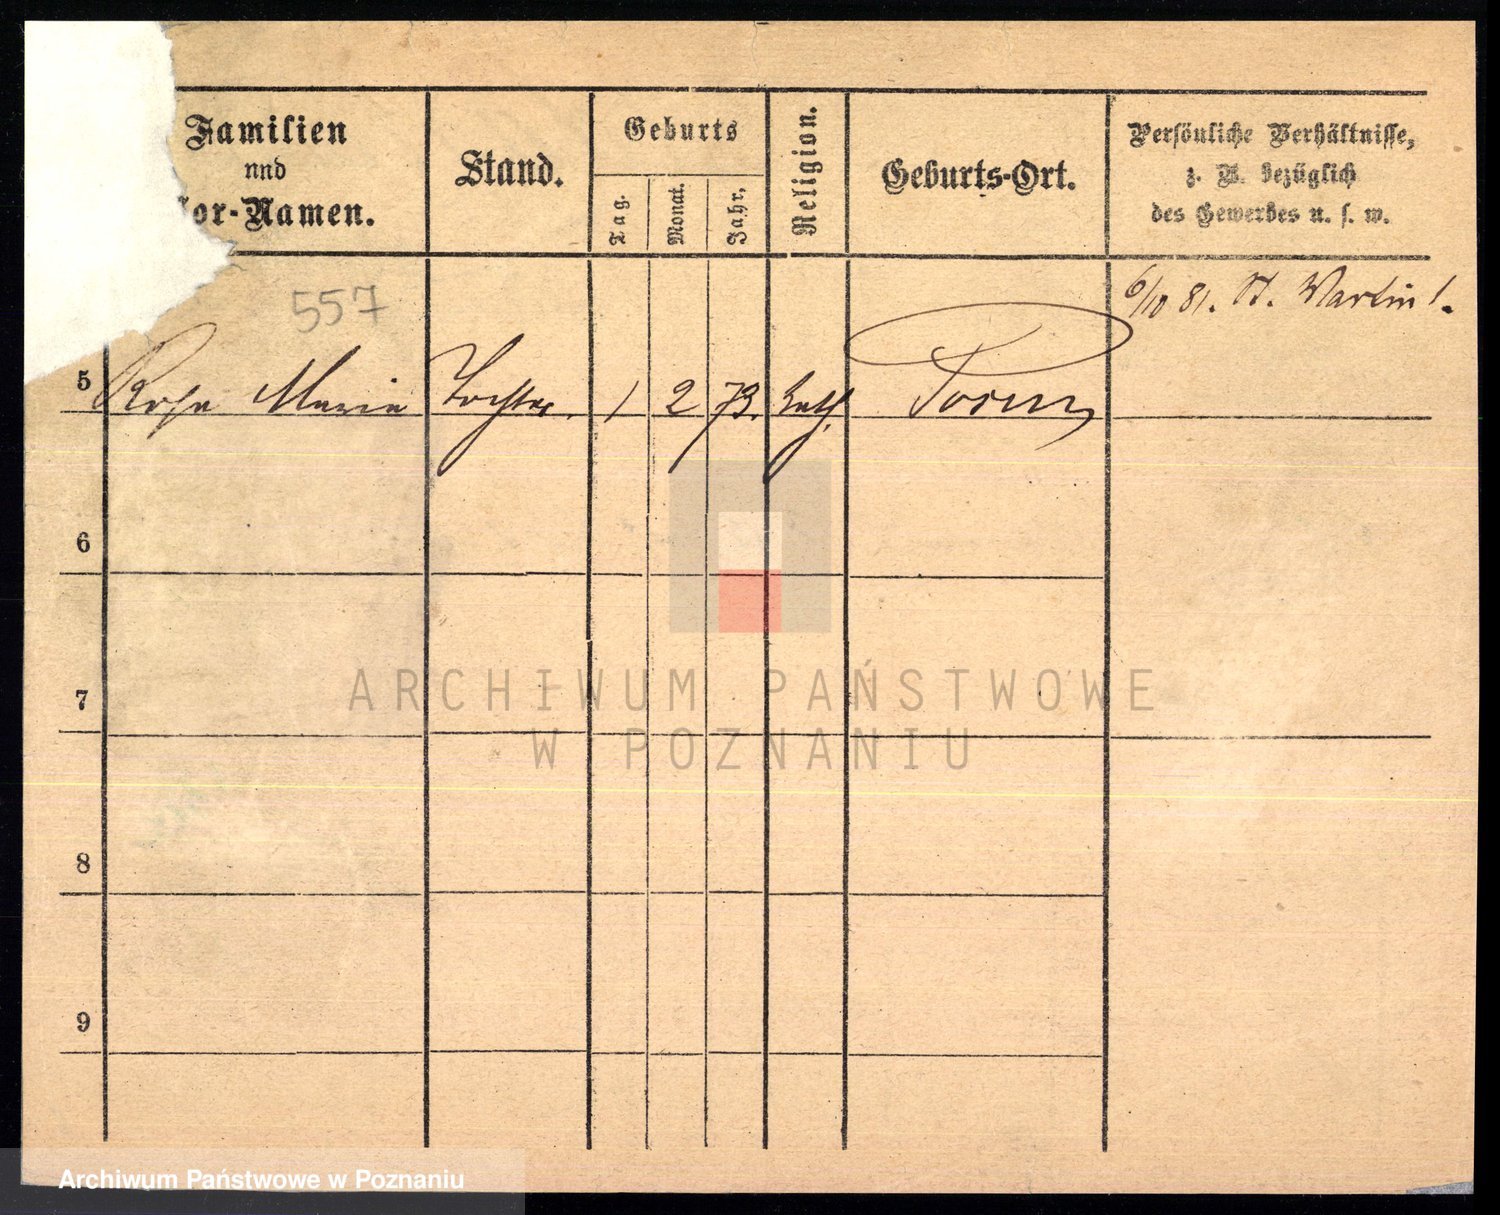 Familien
und
Vor-Namen.
Stand.
Geburts
Tag.
Monat.
Jahr,
Religion.
Geburts-Ort.
Persönliche Verhältnisse,
z. B. bezüglich
des Gewerbes u. s. w.
557
6/10 81. St. Martin 1.
5 Rosa Maria Tochter. 1 2 73. kath. Posen
6
7
8
9
ARCHIWUM PAŃSTWOWE
W POZNANIU
Archiwum Państwowe w Poznaniu